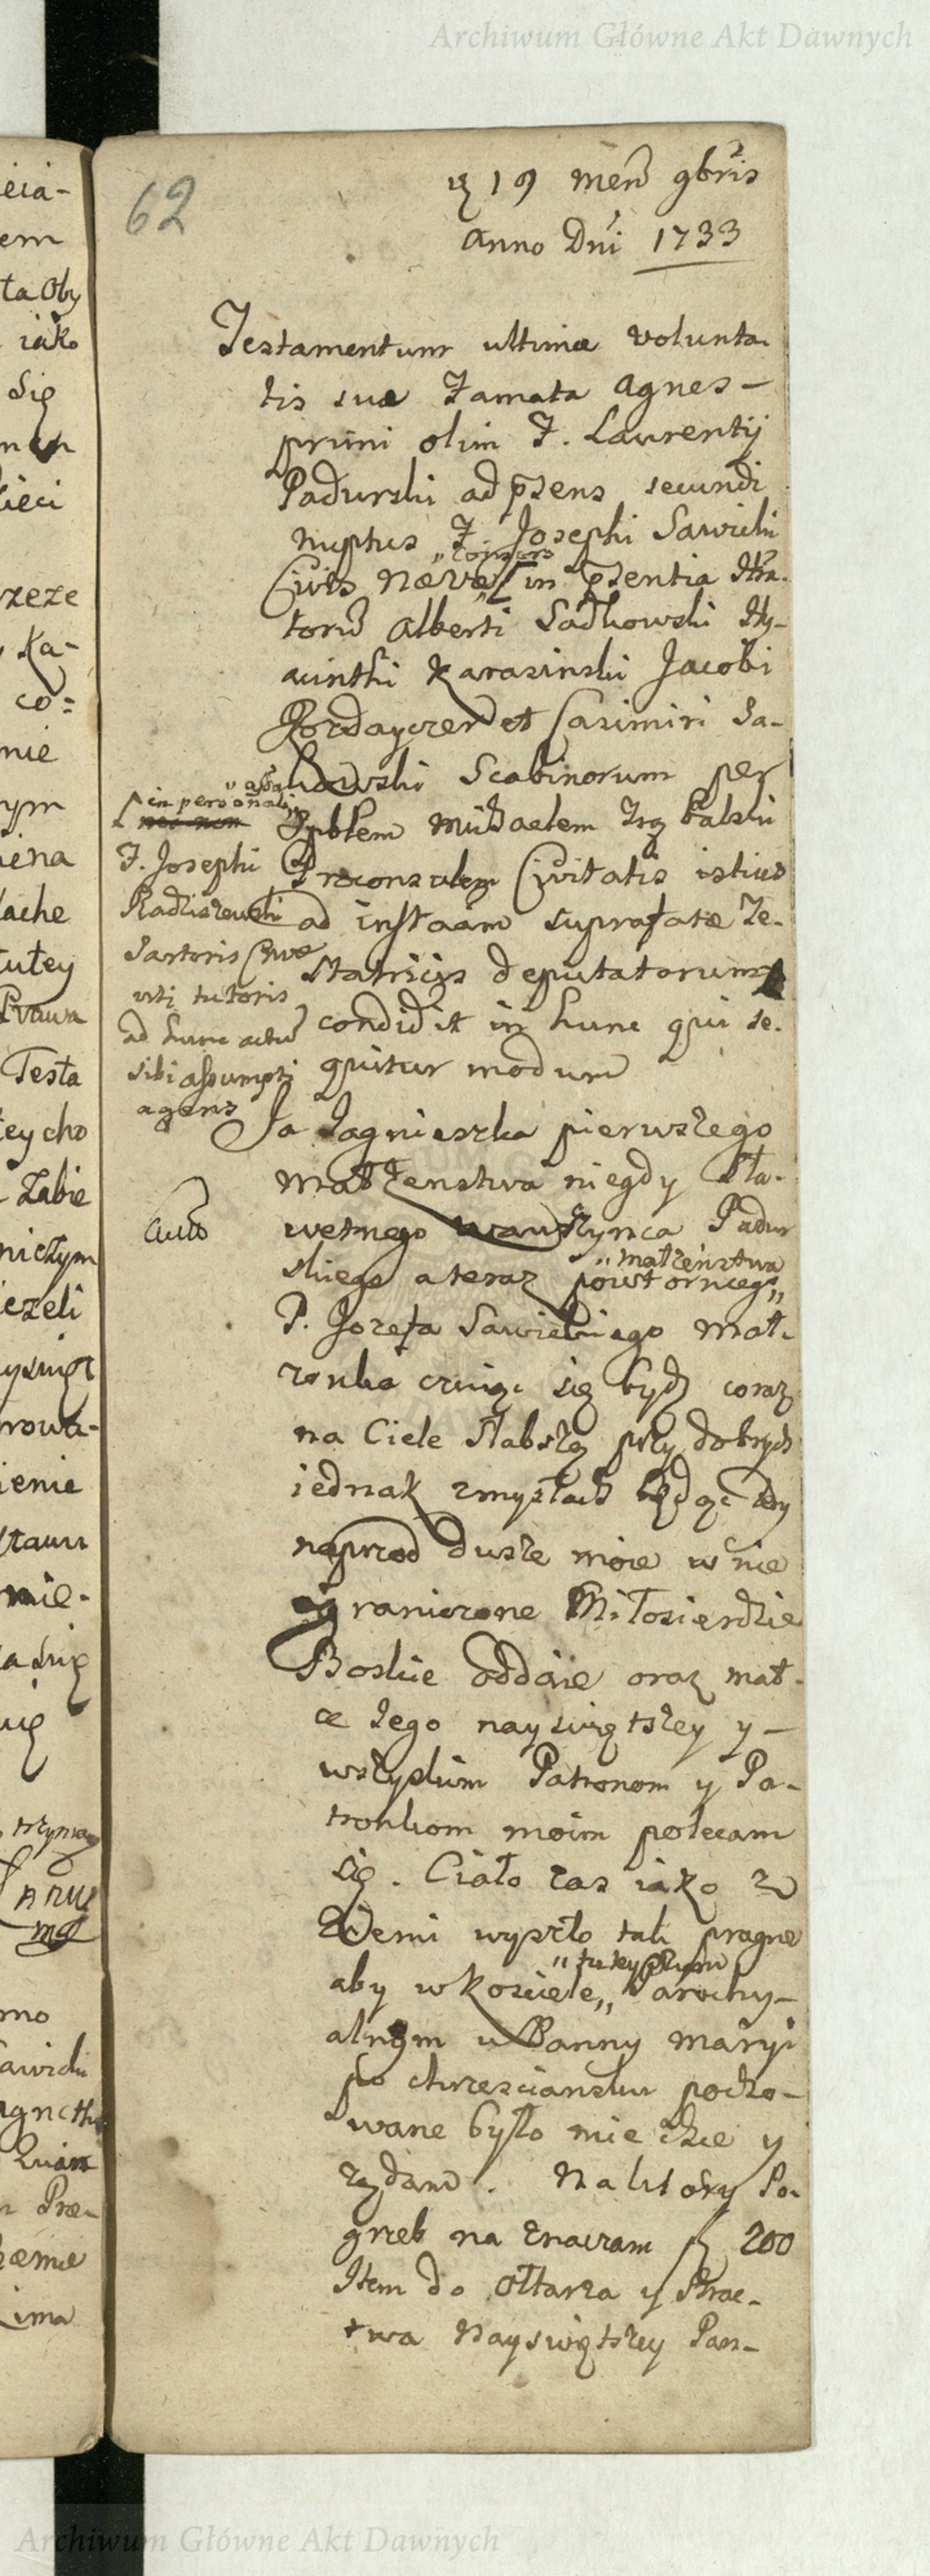 Archiwum Główne Akt Dawnych
62
19 Mens 9bris
Anno Dni 1733
Testamentum ultimæ volunta-
tis suæ Famata Agnes -
primi olim F. Laurentij
Padurski ad psens secundi
nuptus F. Josephi Sawicki
"consors
Civis Nævæ [in psentia
torum Alberti Sadkowski Hy-
acinthi Karasinski Jacobi
et Casimiri Sa-
kowski Scabinorum per
Spblem Michaelem
Proconsulem Civitatis istius
ad instaam suprafatæ Te-
statricis deputatorum
condidit in hunc qui se-
quitur modum
[in personali
nec non
F. Josephi
Radziszewski
Sartoris Cive
uti tutoris
ad hunc actum
sibi assumpti
agens
Ja Jagnieszka pierwszego
Małżenstwa niegdy Sła-
wetnego Wawrzynca Padur
"małżeństwa
skiego a teraz powtornego"
P. Jozefa Sawickiego Mał-
zonka czuiąc się bydz coraz
na Ciele słabszą przy dobrych
iednak zmysłach będąc
naprzod dusze moie w nie
ograniczone Miłosierdzie
Boskie oddaie oraz mat-
ce Jego nayswiętszey y -
wszystkim Patronom y Pa-
tronkom moim polecam
się. Ciało zas iako z
Ziemi wyszło tak pragne
aby w Kosciele" Parochy-
alnym u Panny Maryi
po chrzesciansku pocho-
wane było mieć chce y
ządam. Na ktory Po-
grzeb na znaczam fl 200
Item do Ołtarza y Brac-
twa Nayswiętszey Pan-
eia-
em
ta Oby
iako
Się
ieci
rzeze
Ka-
co:
nie
rym
iena
lache
tutey
Prawa
Testa
tey cho
zabie
niczym
iezeli
rowa-
ienie
mie-
mno
awicki
Præ-
ima
Archiwum Główne Akt Dawnych